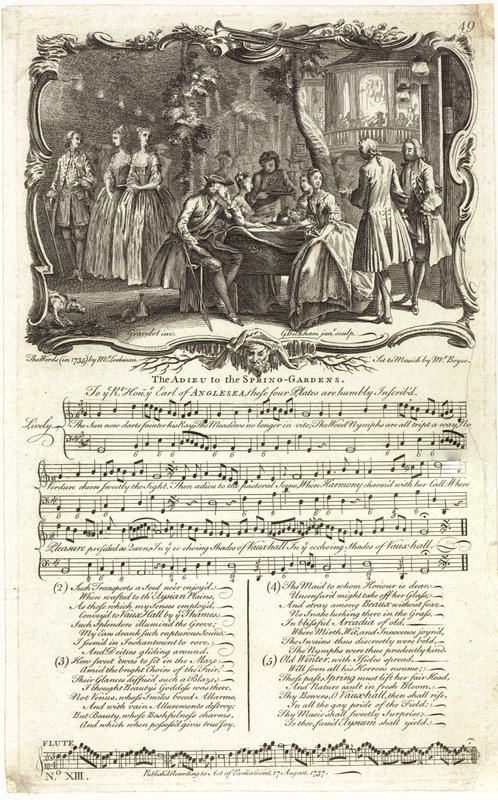 49
Gravelot inv.
G.Bickham junr. sculp.
The Words (in 1735) by Mr. Lockman.
Set to Musick by Mr. Boyce.
The ADIEU to the SPRING-GARDENS.
To ye Rt. Hon: ye Earl of ANGLESEA, these four Plates are humbly Inscrib'd.
Lively.
The Sun now darts fainter his Ray, The Meadows no longer in-vite; The Wood Nymphs are all tript a-way, No
Verdure cheers sweetly the Sight. Then adieu to the pastoral Scene, Where Harmony charm'd with her Call. Where
Pleasure presided as Queen, In ye ec-choing Shades of Vauxhall. In ye ecchoing Shades of Vauxhall.
(2) Such Transports a Soul ne'er enjoy'd,
When wafted to th' Elysian Plains,
As those which my Senses employ'd,
Convey'd to Vaux Hall by ye Thames,
Such Splendors illumin'd the Grove;
My Ears drank such rapturous Sound;
I seem'd in Inchantment to rove,
And Deities gliding around.
(3) How sweet 'twas to sit in the Maze
Amid the bright Choirs of the Fair;
Their Glances diffus'd such a Blaze,
I thought Beauty's Goddess was there.
Not Venus, whose Smiles breed Allarms,
And with vain Allurements destroy;
But Beauty, whose Bashfulness charms,
And which when possess'd gives true Joy.
(4) The Maid to whom Honour is dear,
Uncensur'd might take off her Glass;
And stray among Beaux without fear,
No Snake lurking there in the Grass,
In blissful Arcadia of old,
Where Mirth, Wit, and Innocence joyn'd,
The Swains thus discreetly were bold,
The Nymphs were thus prudently kind.
(5) Old Winter, with Isicles spread,
Will soon all his Horrors resume;
Those past, Spring must lift her fair Head,
And Nature exult in fresh Bloom.
Thy Bowers, O Vauxhall, then shall rise,
In all the gay pride of the Field:
Thy Musick shall sweetly Surprise;
To thee, fam'd Elysium shall yield.
FLUTE
No. XIII.
Publish'd According to Act of Parliament, 17 August, 1737.